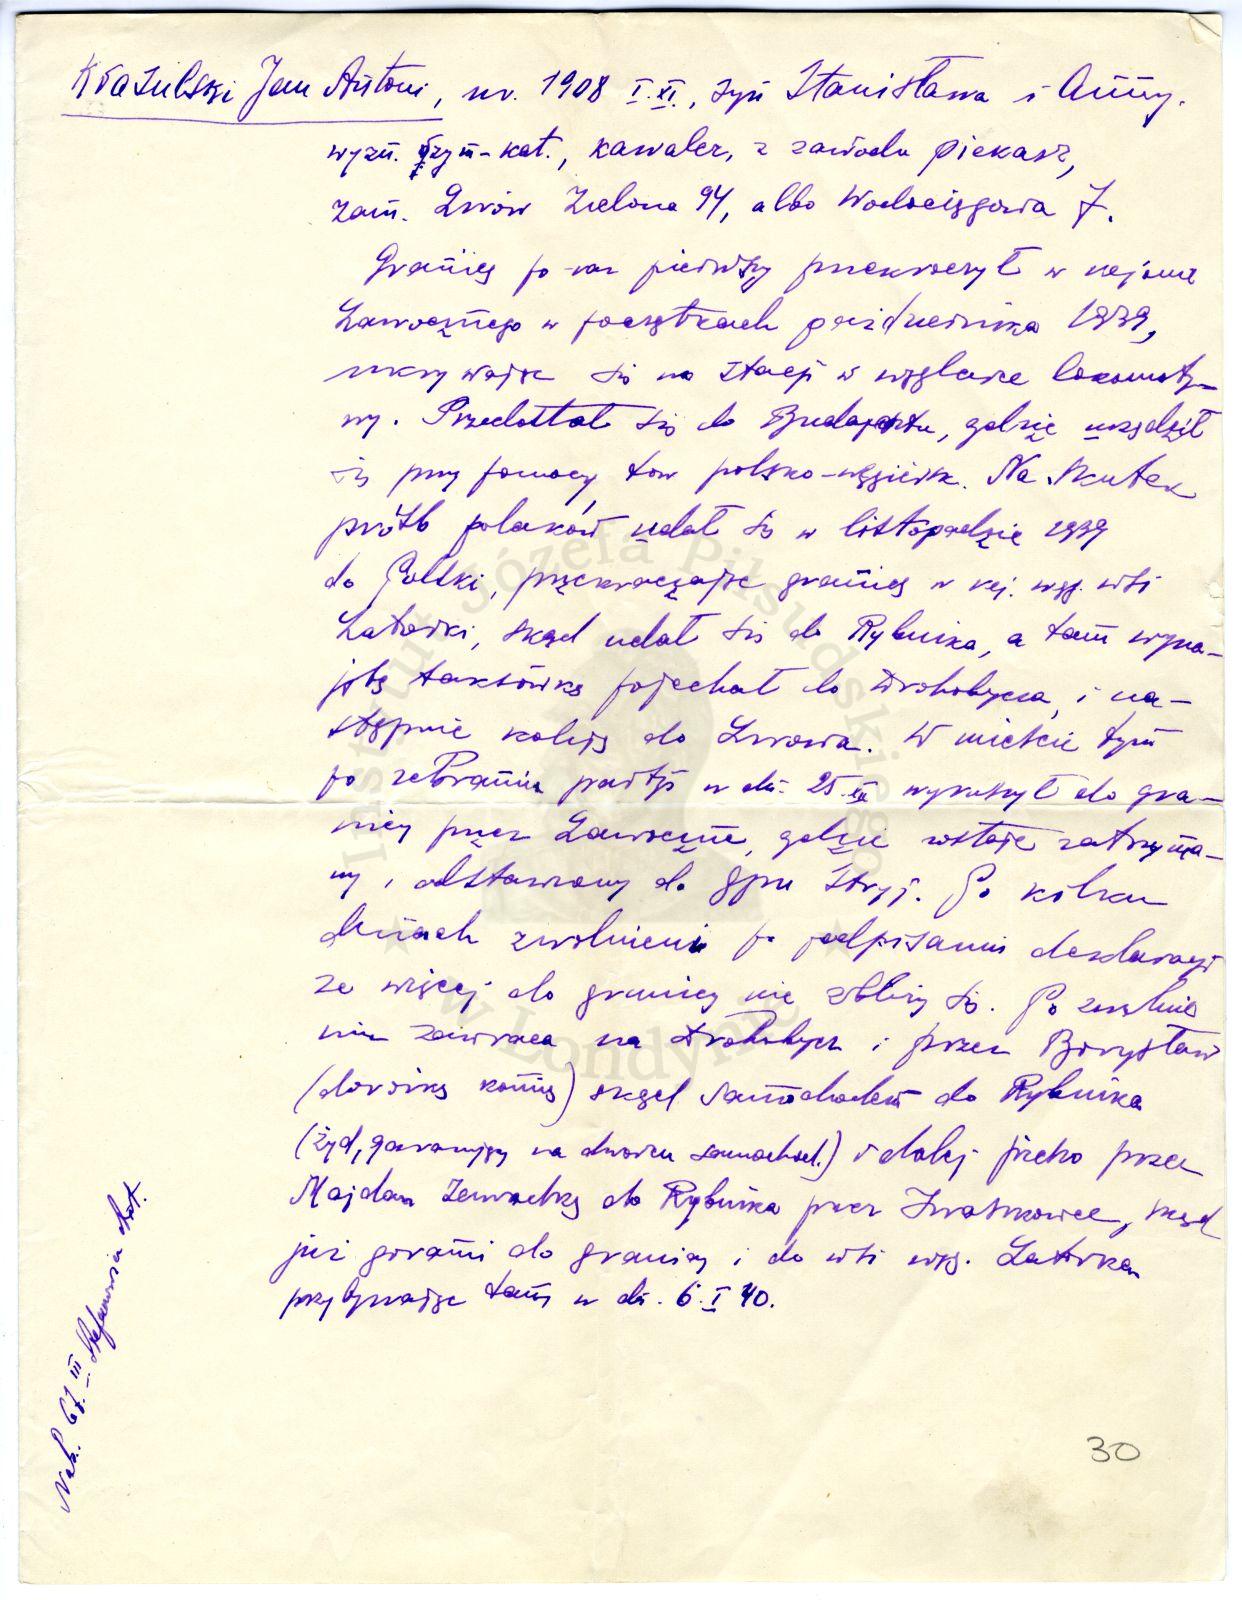 Kłasulski Jan Antoni, ur. 1908 I.XI., syn Stanisława i Anny.
wyzn. rzym-kat., kawaler, z zawodu piekarz,
zam. Lwów Zielona 94, albo Wodociągowa 7.
Granicę po raz pierwszy przekroczył w rejonie
Ławocznego w początkach października 1939,
ukrywając się na stacji w węglarce lokomoty-
wy. Przedostał się do Budapesztu, gdzie urządził
się przy pomocy tow polsko-węgiersk. Na skutek
próśb polaków udał się w listopadzie 1939
do Polski, przekraczając granicę w rej. węg. wsi
Latorki, skąd udał się do Rybnika, a tam wyna-
jętą taksówką pojechał do Drohobycza, i na-
stępnie koleją do Lwowa. W mieście tym
po zebraniu partji w dn. 25.XII wyruszył do gra-
nicy przez Ławoczne, gdzie zostaje zatrzyma-
ny i odstawiony do gpu Stryj. Po kilku
dniach zwolnieni po podpisaniu deklaracji
że więcej do granicy nie zbliży się. Po zwolnie
niu zawraca na Drohobycz i przez Borysław
(dorożką konną) skąd samochodem do Rybnika
(żyd, garażujący na dworcu samochod.) i dalej pieszo przez
Majdan do Rybnika przez Iwaszkowce, skąd
już górami do granicy i do wsi węg. Latorka
przybywając tam w dn. 6.I 40.
30
Nab. 67. III
Józefa Piłsudskiego
w Londynie